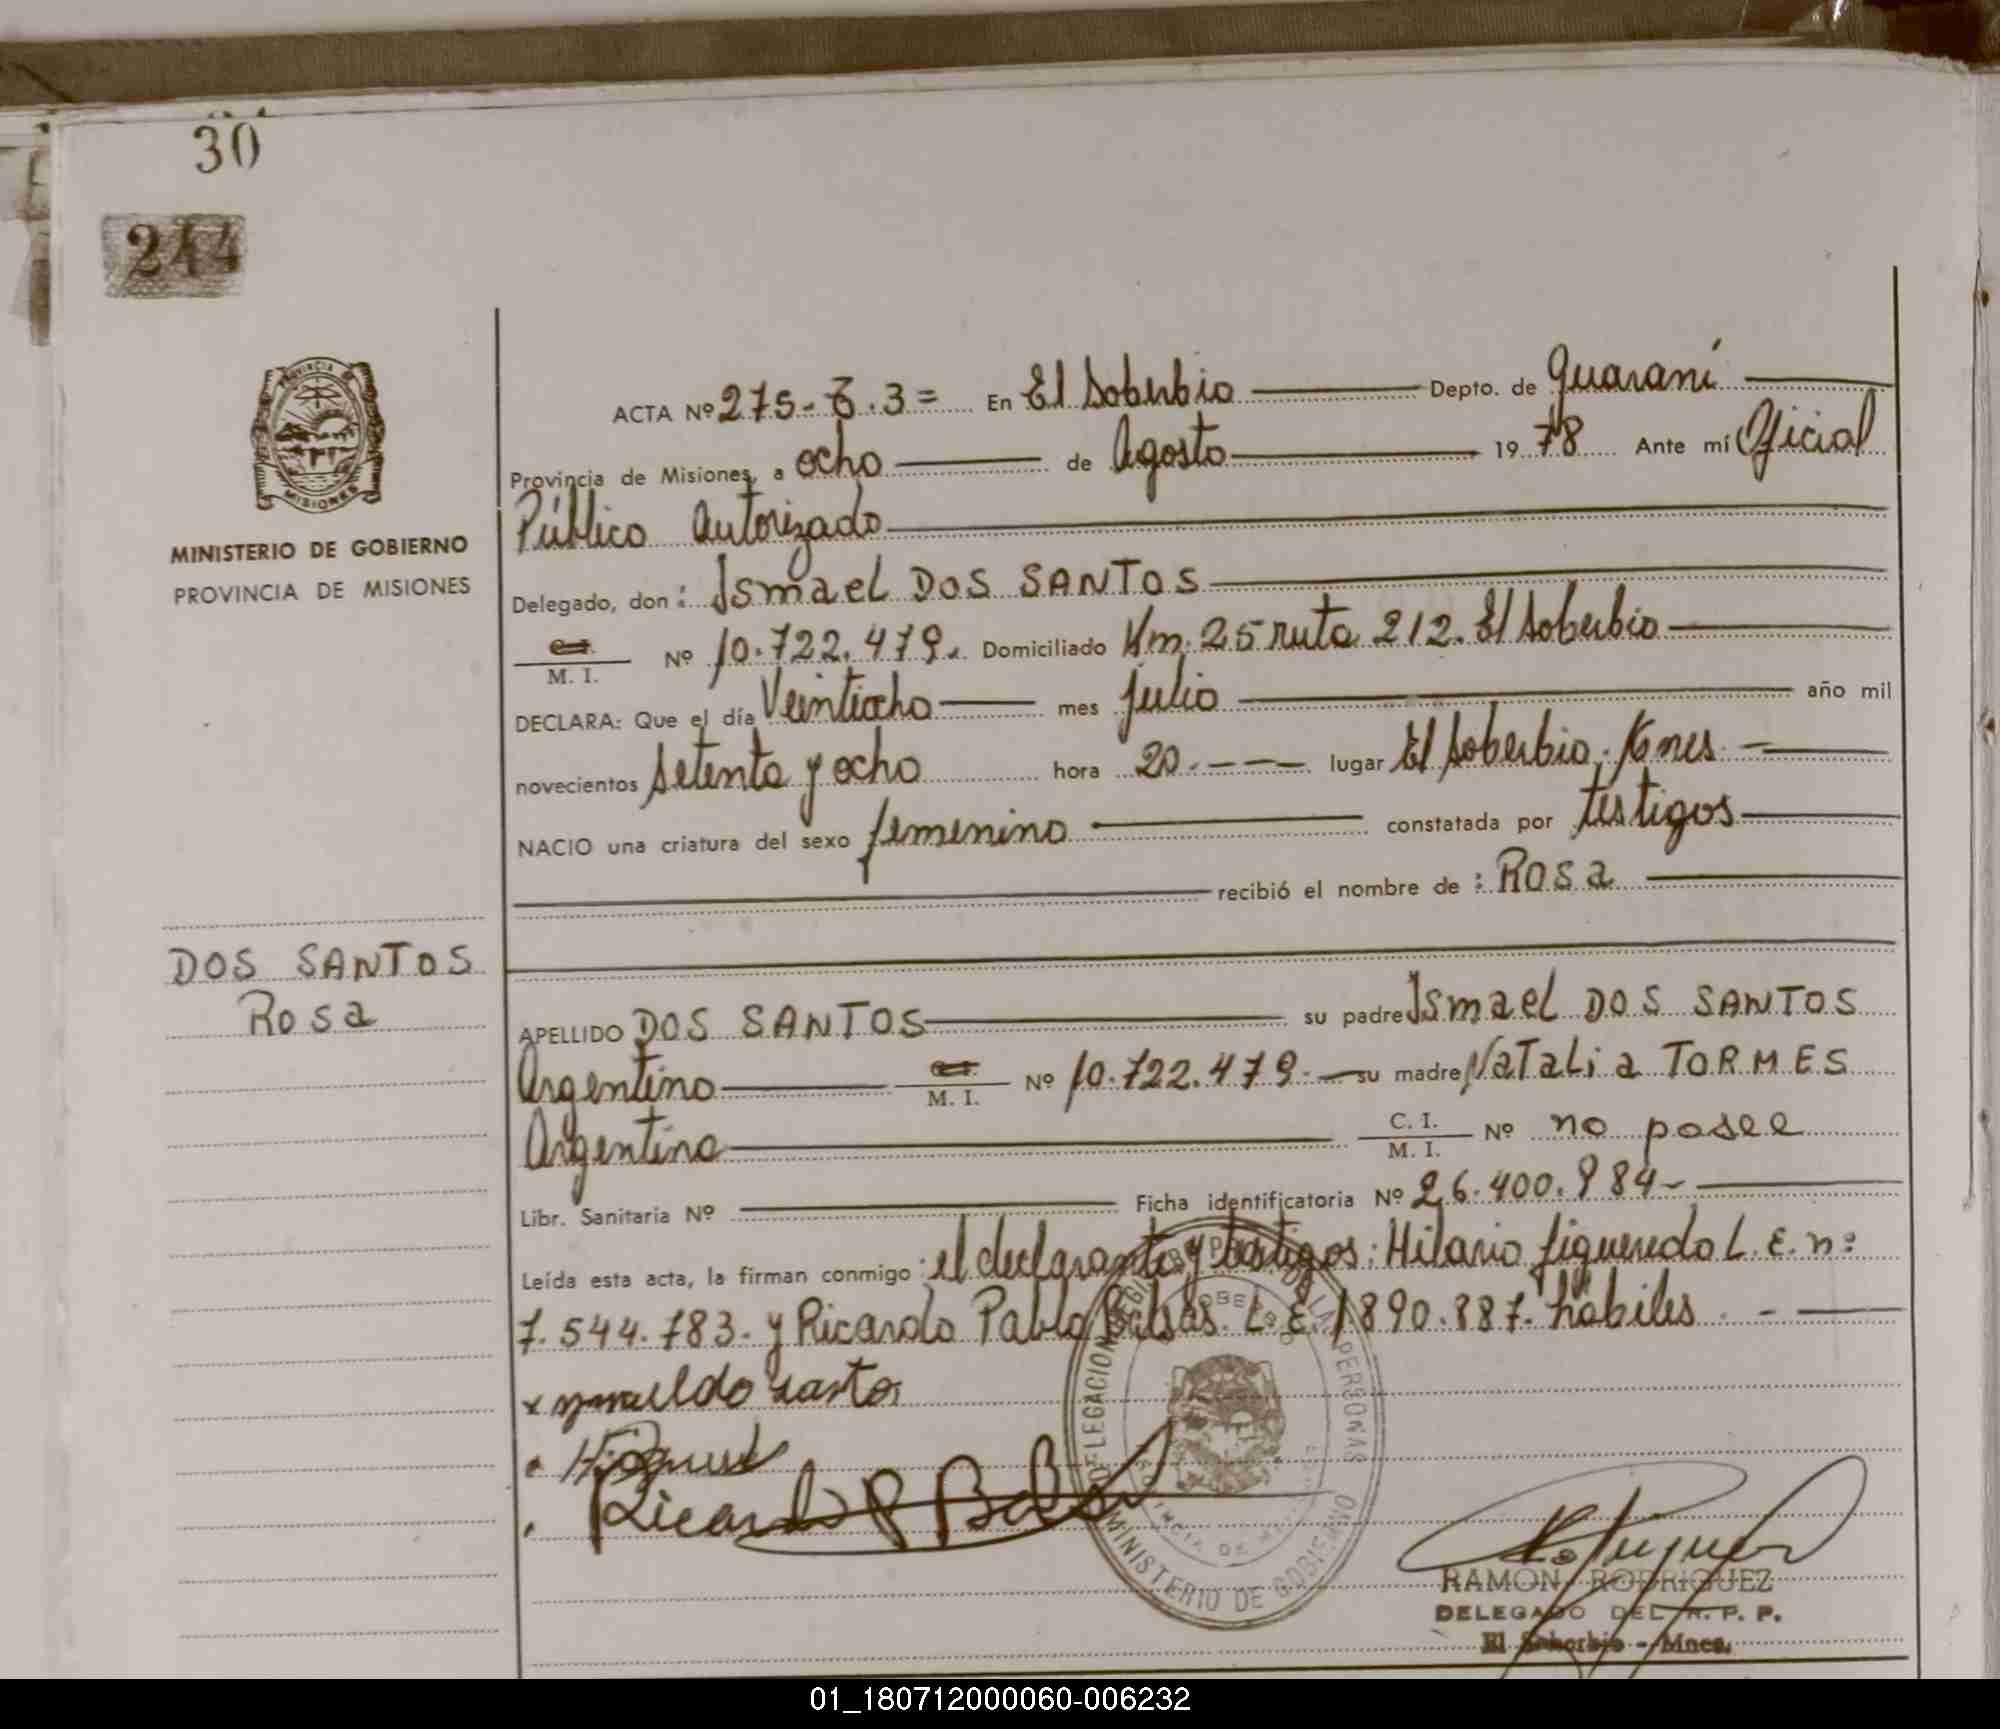 30
244
PROVINCIA DE
MISIONES
MINISTERIO DE GOBIERNO
PROVINCIA DE MISIONES
DOS SANTOS
Rosa
ACTA Nº 275- . 3= En El Soberbio Depto. de Guaraní
Provincia de Misiones, a ocho de Agosto 1978 Ante mí Oficial
Público Autorizado
Delegado, don: Ismael DOS SANTOS
M. I. Nº 10.722.479. Domiciliado Km. 25 ruta 212. El Soberbio
DECLARA: Que el día Veintiocho mes julio año mil
novecientos Setenta y ocho hora 20.---- lugar El Soberbio.
NACIO una criatura del sexo femenino constatada por testigos
recibió el nombre de: Rosa
APELLIDO DOS SANTOS su padre Ismael DOS SANTOS
Argentino M. I. Nº 10.722.479.- su madre Natalia TORMES
Argentina C. I. M. I. Nº no posee
Libr. Sanitaria Nº Ficha identificatoria Nº 26.400.984-
Leída esta acta, la firman conmigo: el declarante y testigos: Hilario figueredo L. E. nº
7.544.783. y Ricardo Pablo L. E. 1890.887. hábiles. -
Ricardo P
DELEGACION LA PERSONAS
MINISTERIO DE GOBIERNO
RAMON RODRIGUEZ
DELEGADO DEL R. P. P.
El Soberbio - Mnes.
01_180712000060-006232